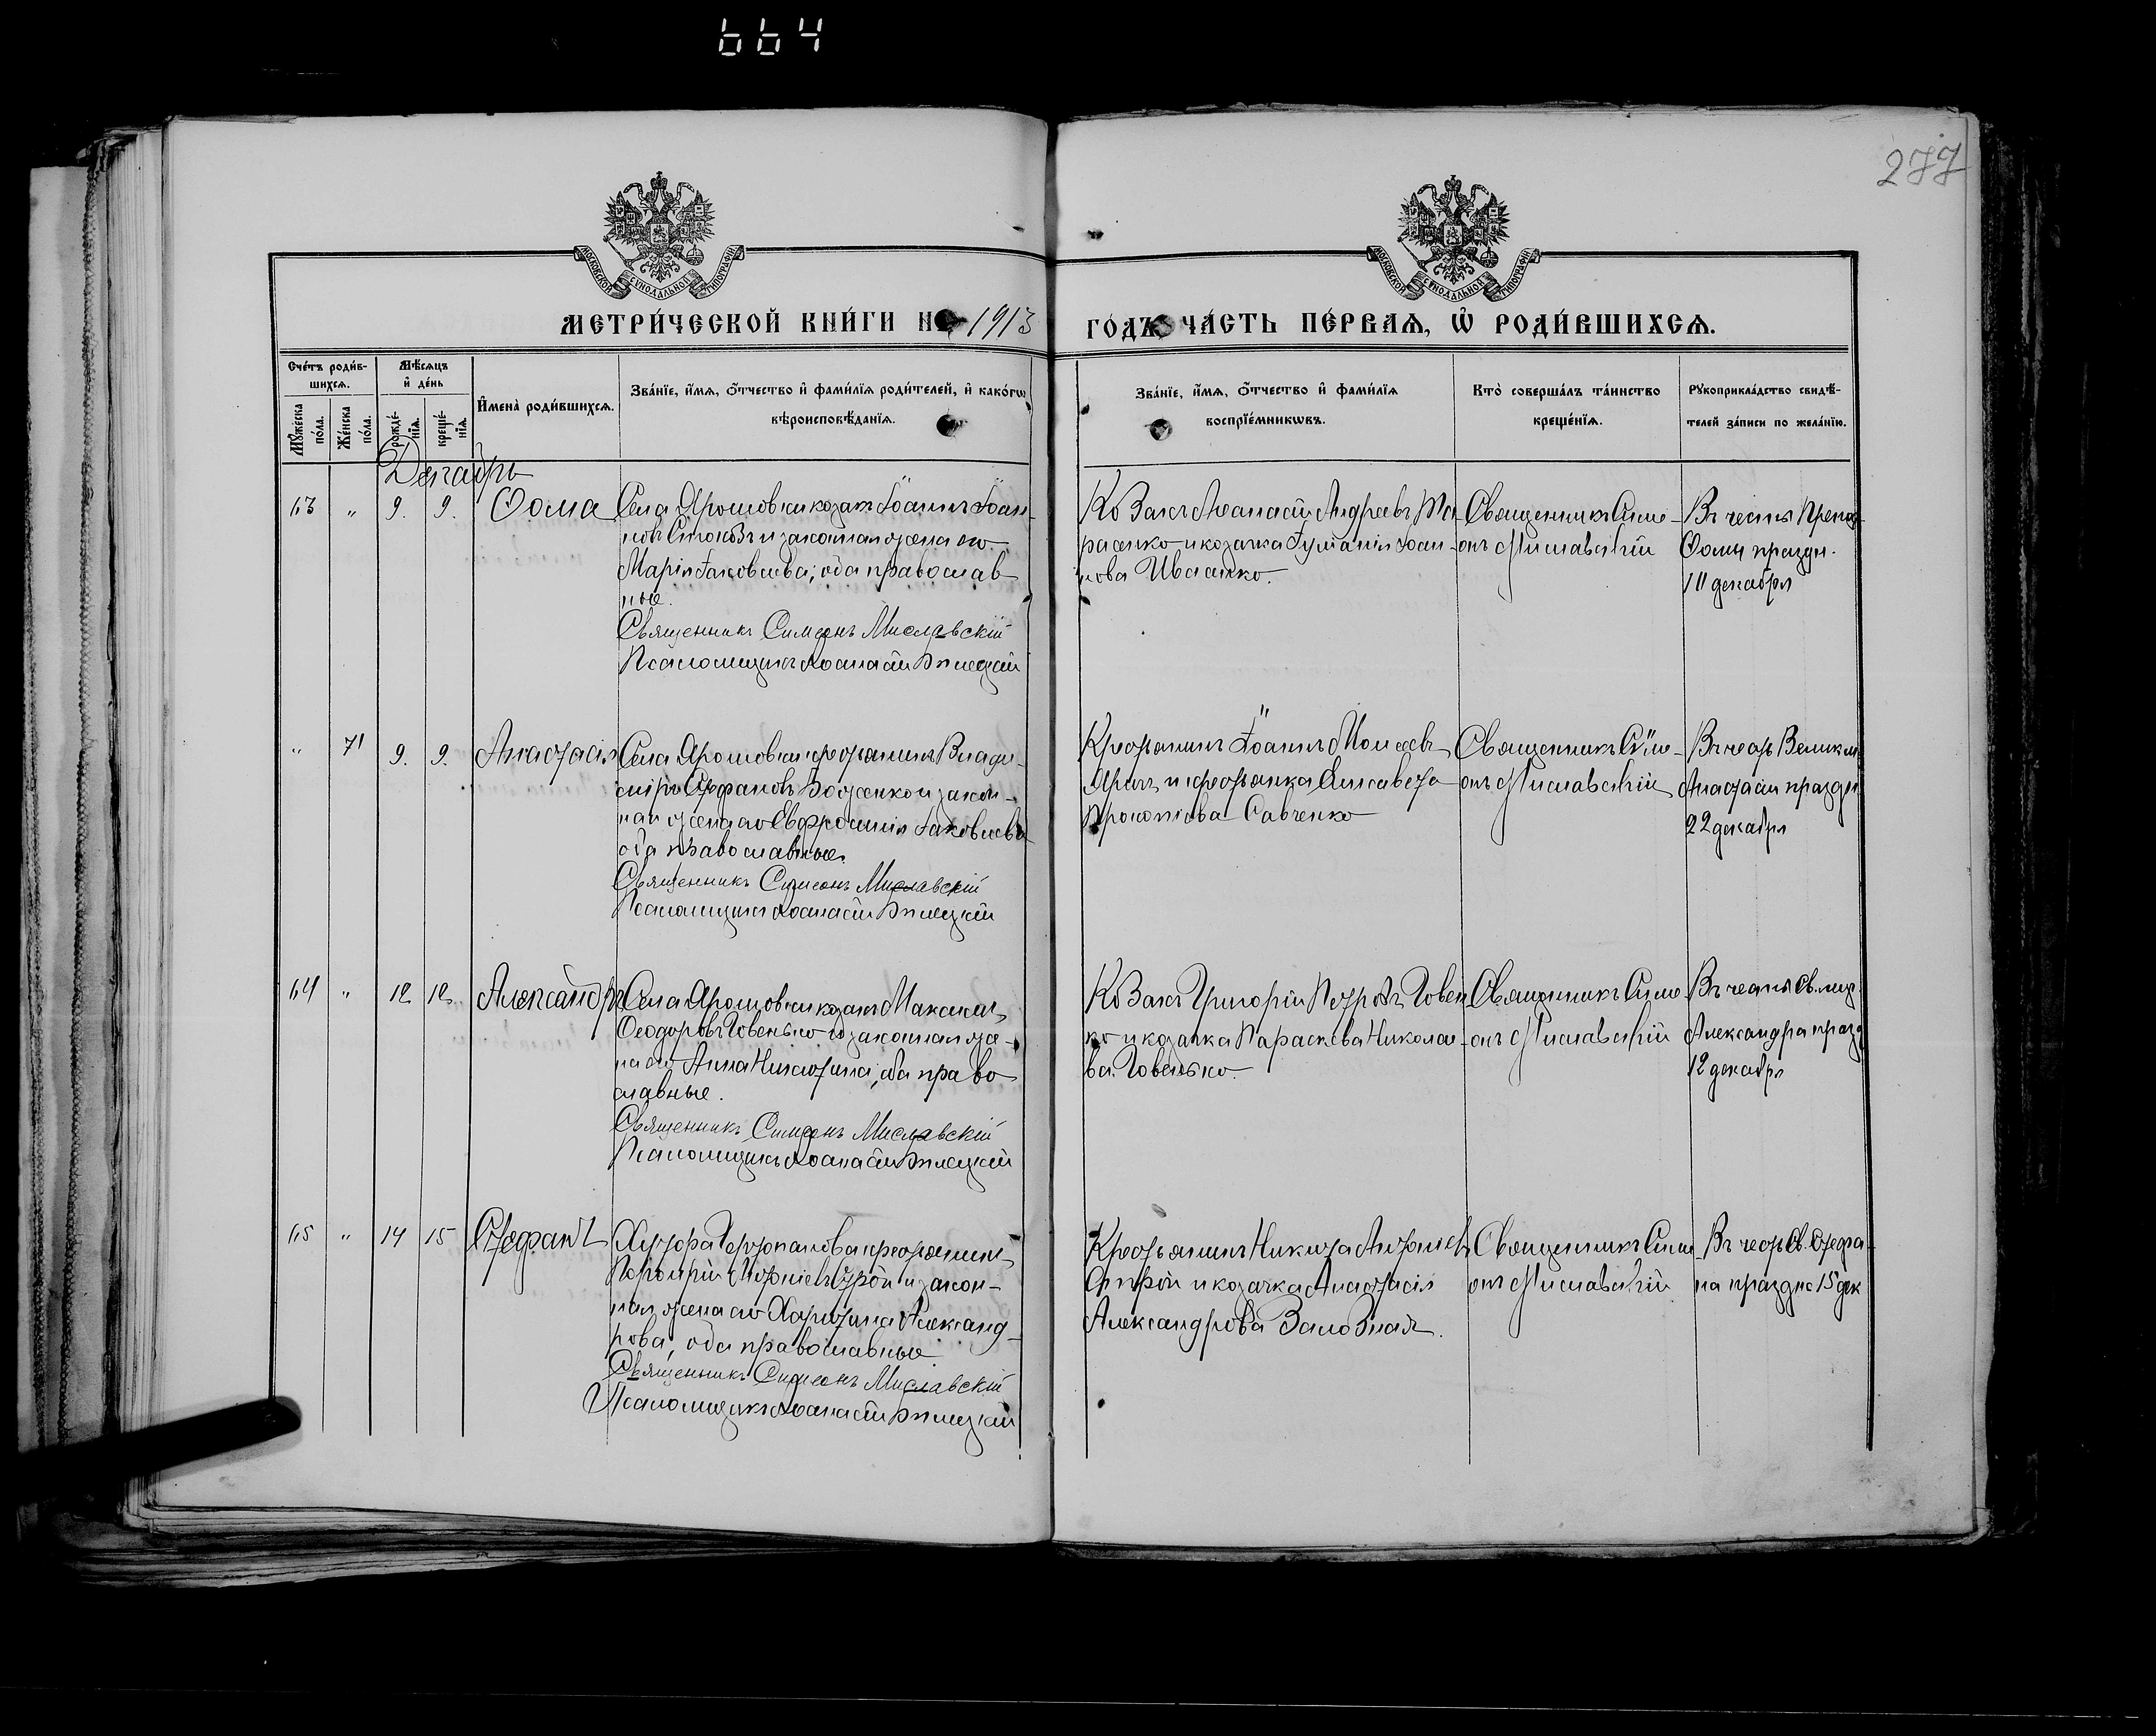 664
277
МОСКОВСКОЙ СѴНОДАЛЬНОЙ ТИПОГРАФІИ
МОСКОВСКОЙ СѴНОДАЛЬНОЙ ТИПОГРАФІИ
МЕТРИ́ЧЕСКОЙ КНИ́ГИ НА 1913
ГО́ДЪ, ЧА́СТЬ ПЕ́РВАѦ, Ѡ҆ РОДИ́ВШИХСѦ.
Сче́тъ роди́в-
шихсѧ.
Мꙋ́жеска
по́ла.
Же́нска
по́ла.
Мѣ́сѧцъ
и҆ де́нь
рожде́-
нїѧ.
креще́-
нїѧ.
И҆мена̀ роди́вшихсѧ.
Зва́нїе, и҆́мѧ, ѻ҆́тчество и҆ фами́лїѧ роди́телей, и҆ како́гѡ
вѣроисповѣ́данїѧ.
Зва́нїе, и҆́мѧ, ѻ҆́тчество и҆ фами́лїѧ
воспрїе́мникѡвъ.
Кто̀ соверша́лъ та́инство
креще́нїѧ.
Рꙋкоприкла́дство свидѣ́-
телей за́писи по жела́нїю.
Декабрь
63 " 9. 9. Ѳома
Села Ярошовки козакъ Іоаннъ Іоан-
новъ и законная жена его
Марія Іаковлева; оба православ
ные.
Священникъ Симеонъ Миславскій
Псаломщикъ Аѳанасій Бѣлецкій
Козакъ Аѳанасій Андреевъ Та-
расенко и козачка Іоан-
нова Иваненко.
Священникъ Симе-
онъ Миславскій
Въ честь Препод
Ѳомы праздн.
10 декабря
" 71 9. 9. Анастасія
Села Ярошовки крестьянинъ Влади-
міръ Стефановъ Боженко и закон-
ная жена его Евфросинія Іаковлева
оба православные.
Священникъ Симеонъ Миславскій
Псаломщикъ Аѳанасій Бѣлецкій
Крестьянинъ Іоаннъ Моисеевъ
и крестьянка Елисавета
Прокопіева Савченко
Священникъ Симе-
онъ Миславскій
Въ честь Великм.
Анастасіи праздн
22 декабря
64 " 12 12. Александръ
Села Ярошовки козакъ Максимъ
Ѳеодоровъ Говенько и законная же-
на его Анна Никитина; оба право
славные.
Священникъ Симеонъ Миславскій
Псаломщикъ Аѳанасій Бѣлецкій
Козакъ Григорій Петровъ Говен
ко и козачка Параскева Николае-
ва Говенько.
Священникъ Симе-
онъ Миславскій
Въ честь Св. муч.
Александра празд
12 декабря
65 " 14 15 Стефанъ
Хутора крестьянинъ
Порфирій и закон-
ная жена его Харитина Александ-
рова, оба православные
Священникъ Симеонъ Миславскій
Псаломщикъ Аѳанасій Бѣлецкій
Крестьянинъ Никита
и козачка Анастасія
Александрова Заловная.
Священникъ Симе
онъ Миславскій
Въ честь Св. Стефа-
на праздн 15 дек